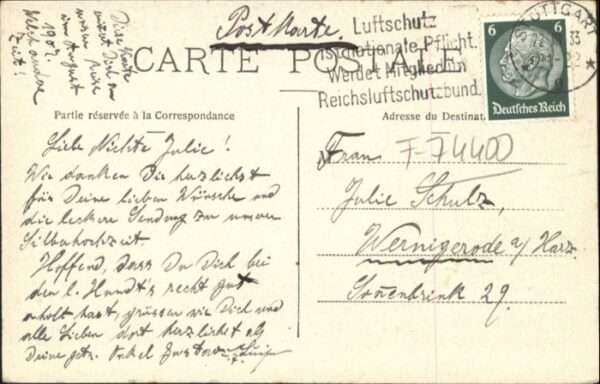 Diese Karte
erinnert Dich an
unsere Reise
im August
1907.
Welch andre
Zeit!
Postkarte.
CARTE POSTALE
Luftschutz
ist nationale Pflicht.
Werdet Mitglied im
Reichsluftschutzbund.
STUTTGART
33
6 6
Deutsches Reich
Partie réservée à la Correspondance
Adresse du Destinat
Liebe Nichte Julie!
Wir danken Dir herzlichst
für Deine lieben Wünsche und
die leckere Sendung zu unserer
Silberhochzeit.
Hoffend, dass Du Dich bei
den l. Hundt's recht gut
erholt hast, grüssen wir Dich und
alle Lieben dort herzlichst als
Deine getr. Onkel Gustav
Frau
7-74400
Julie Schulz,
Wernigerode a/Harz.
Sonnenbrink 29.